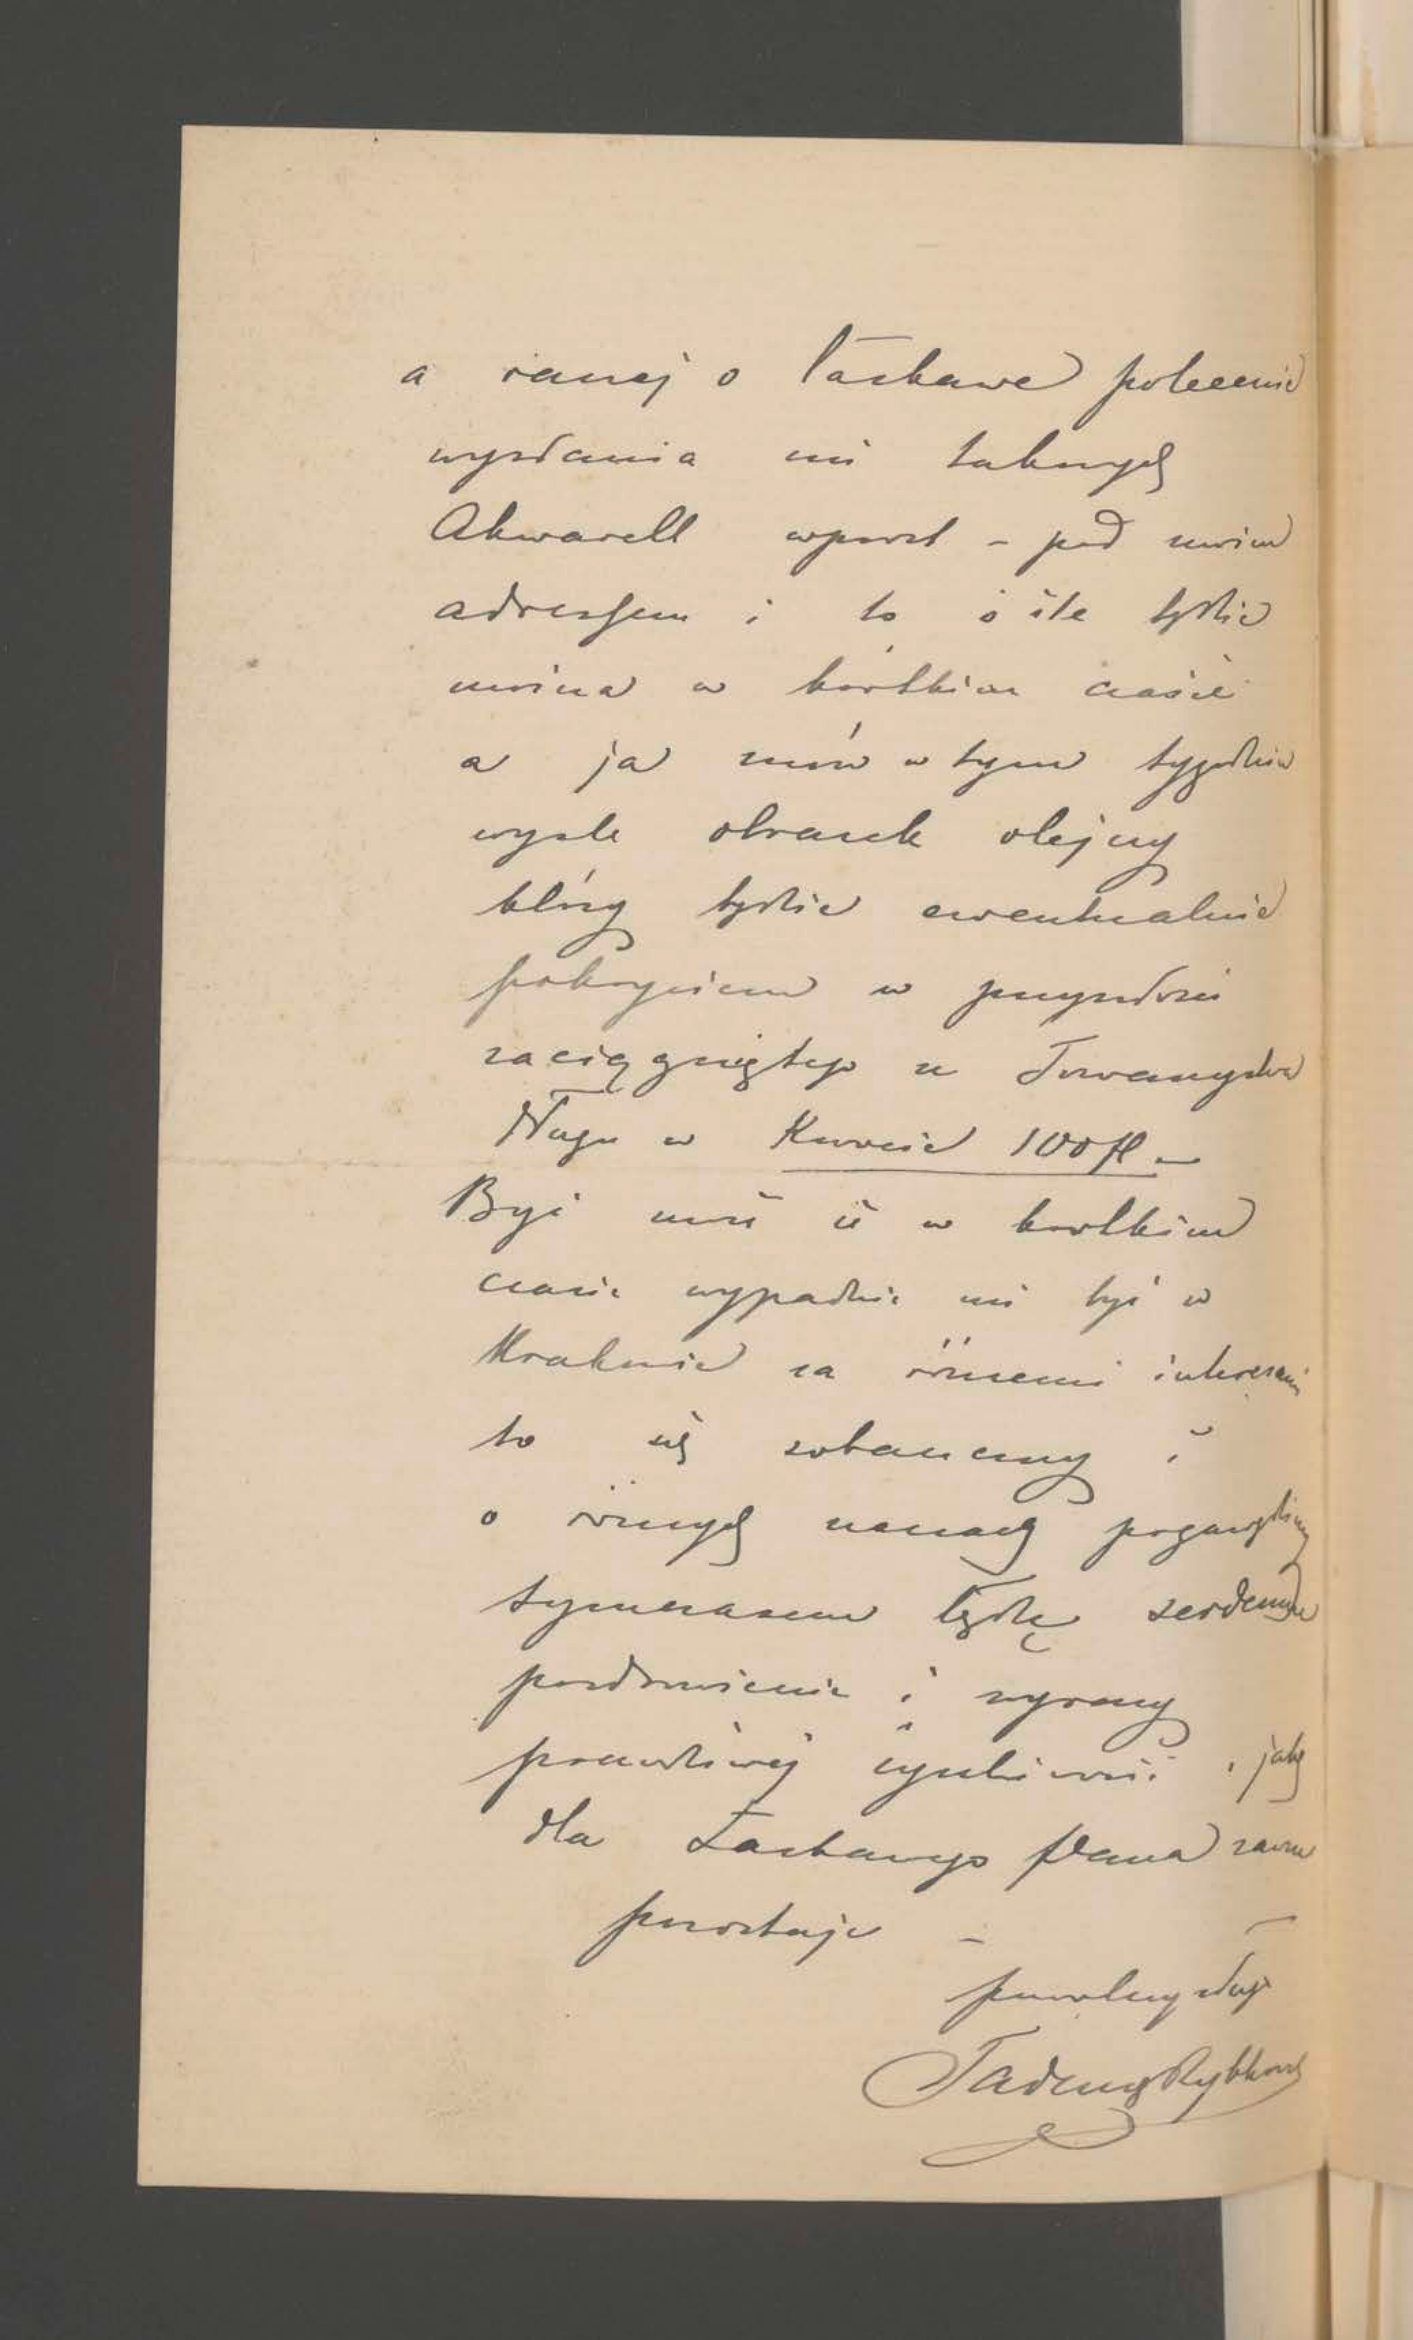 a raczej o łaskawe polecenie
wysłania mi takowych
Akwarell wprost – pod moim
adressem i to o ile tylko
można w krótkim czasie
a ja znów w tym tygodniu
wyśle obrazek olejny
który będzie ewentualnie
pokryciem w przyszłości
zaciągniętego u Towarzystwa
długu w Kwocie 100 fl –
Być może iż w krótkim
czasie wypadnie mi być w
Krakowie za różnemi interesami
to się zobaczemy i
o różnych rzeczach pogawędzimy
tymczasem łączę serdeczne
pozdrowienie i wyrazy
prawdziwej życzliwości, jaką
dla Łaskawego Pana zawsze
pozostaje –
powolny sługa
Tadeusz Rybkowski